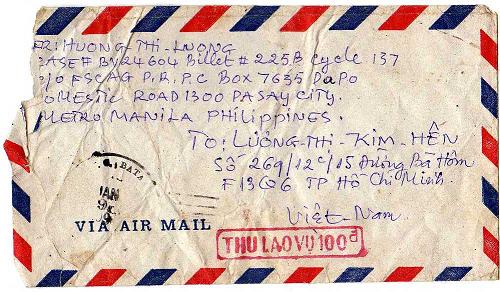 FR: HUONG-THI-LUONG
CASEF BV24604 Billet # 225B cycle 137
C/O FSCAG P.R.P.C BOX 7635 DAPO
DOMESTIC ROAD 1300 PASAY CITY.
METRO MANILA PHILIPPINES.
TO: LƯƠNG-THỊ-KIM-HẾN
Số 269/12C/15 Đường Bà Hôm
F13Q6 TP Hồ Chí Minh.
Việt-Nam
BATA
JAN
VIA AIR MAIL
THU LAO VỤ 100đ